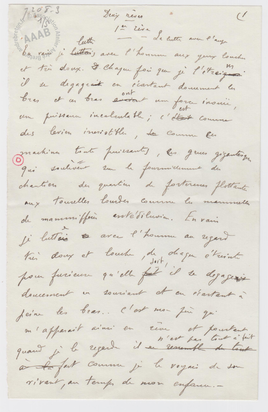 7208.3
AAAB
(1
Deux rêves
1er rêve
lutté — Je lutte avec l'ange
je luttais avec l'homme aux yeux louche
et très doux. Chaque fois que je l'étreignais
il se dégageait en écartant doucement les
bras et ces bras avaient une force inouïe,
une puissance incalculable ; c'était comme
des leviers invisibles, comme ces
machines toute puissantes, ces grues gigantesques
qui soulèvent sur le fourmillement des
chantiers des quartiers de forteresses flottantes
aux tourelles lourdes comme les mamelles
de mammifères antédiluviens. En vain
je luttais avec l'homme au regard
très doux et louche, de chaque étreinte
pour furieuse qu'elle fût il se dégageait
doucement en souriant et en écartant à
peine les bras.. C'est mon père qui
m'apparaît ainsi en rêve et pourtant
quand je le regarde il n'est pas tout à fait
comme je le voyais de son
vivant, au temps de mon enfance.